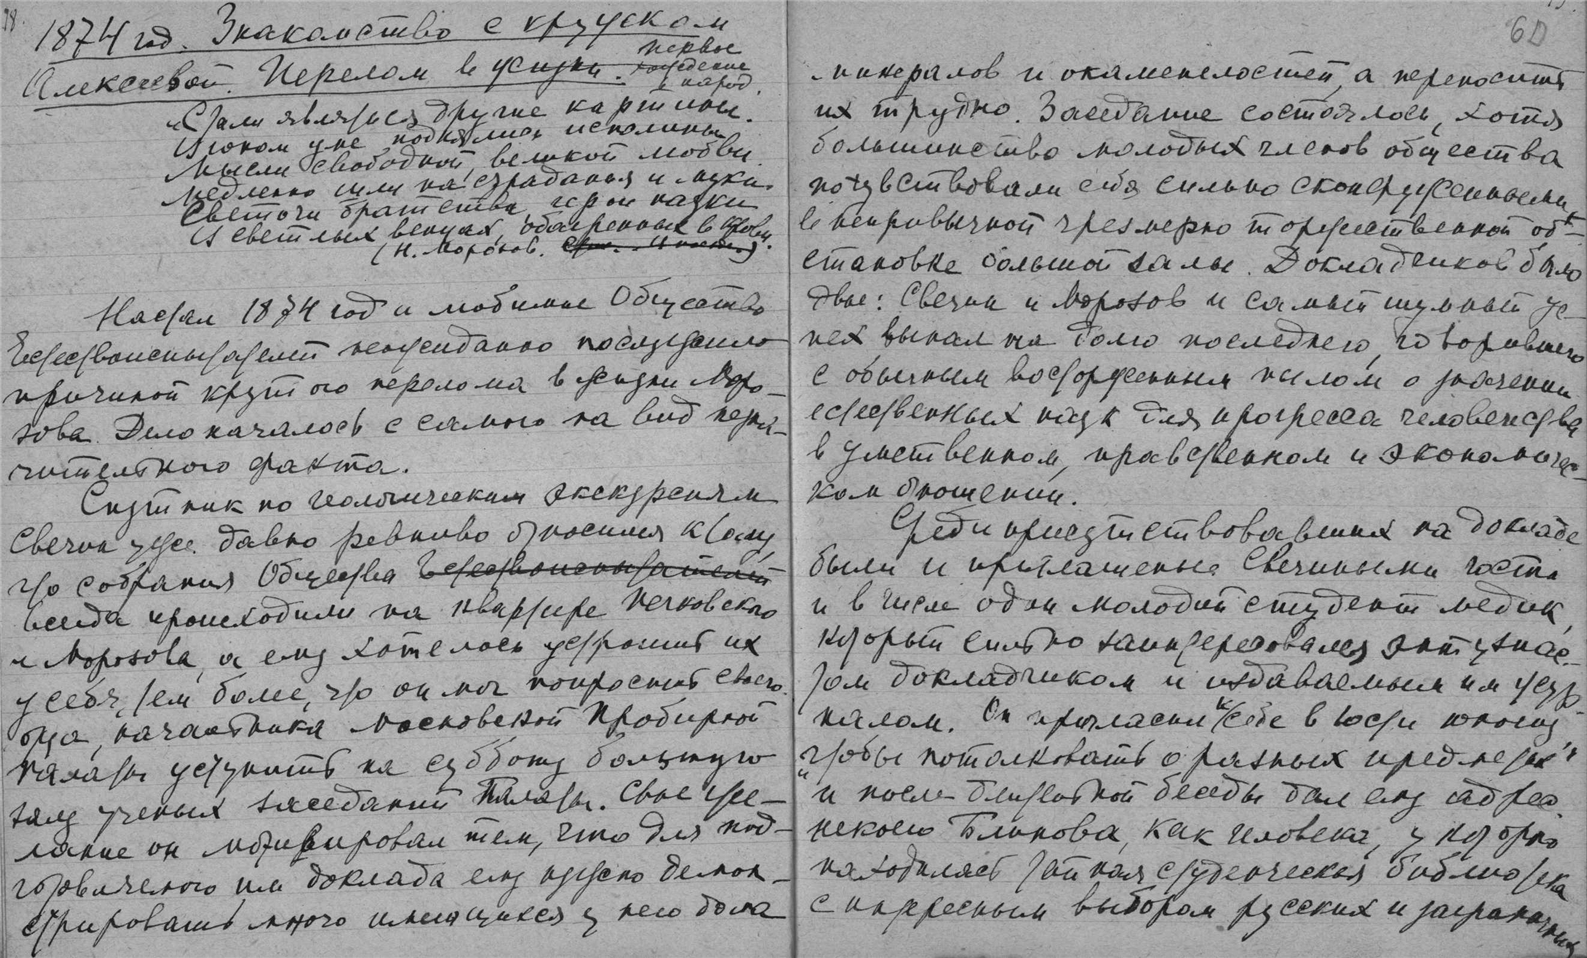 1874 год. Знакомство с кружком
Алексеевой. Перелом в жизни. первое
хождение
в народ.
"Стали являться другие картины.
В юном уме поднялись исполины
Мысли свободной, великой любви.
Медленно шли на страдания и муки
Светочи братства, герои науки
В светлых венцах, обагренных в крови.
(Н. Морозов.
Настал 1874 год и любимое Общество
Естествоиспытателей неожиданно послужило
причиной крутого перелома в жизни Моро-
зова. Дело началось с самого на вид незна-
чительного факта.
Спутник по геологическим экскурсиям
Свечин уже давно ревниво относился к тому,
что собрания Общества Естествоиспытателей
всегда происходили на квартире Печковского
и Морозова, а ему хотелось устроить их
у себя, тем более, что он мог попросить своего
отца, начальника Московской Пробирной
палаты уступить на субботу большую
залу ученых заседаний Палаты. Свое же-
лание он мотивировал тем, что для под-
готовленного им доклада ему нужно демон-
стрировать много имеющихся у него дома
60
минералов и окаменелостей, а переносить
их трудно. Заседание состоялось, хотя
большинство молодых членов общества
почувствовали себя сильно сконфуженными
в непривычной чрезмерно торжественной об-
становке большой залы. Докладчиков было
двое: Свечин и Морозов и самый шумный ус-
пех выпал на долю последнего, говорившего
с обычным восторженным пылом о значении
естественных наук для прогресса человечества
в умственном, нравственном и экономичес-
ком отношении.
Среди присутствовавших на докладе
были и приглашенные Свечиными гости
и в числе один молодой студент медик,
который сильно заинтересовался энтузиас-
том докладчиком и издаваемым им жур-
налом. Он пригласил к себе в гости юношу
чтобы потолковать о разных предметах"
"и после длительной беседы дал ему адрес
некоего Блинова, как человека, у которого
находилась тайная студенческая библиотека
с интересным выбором русских и заграничных